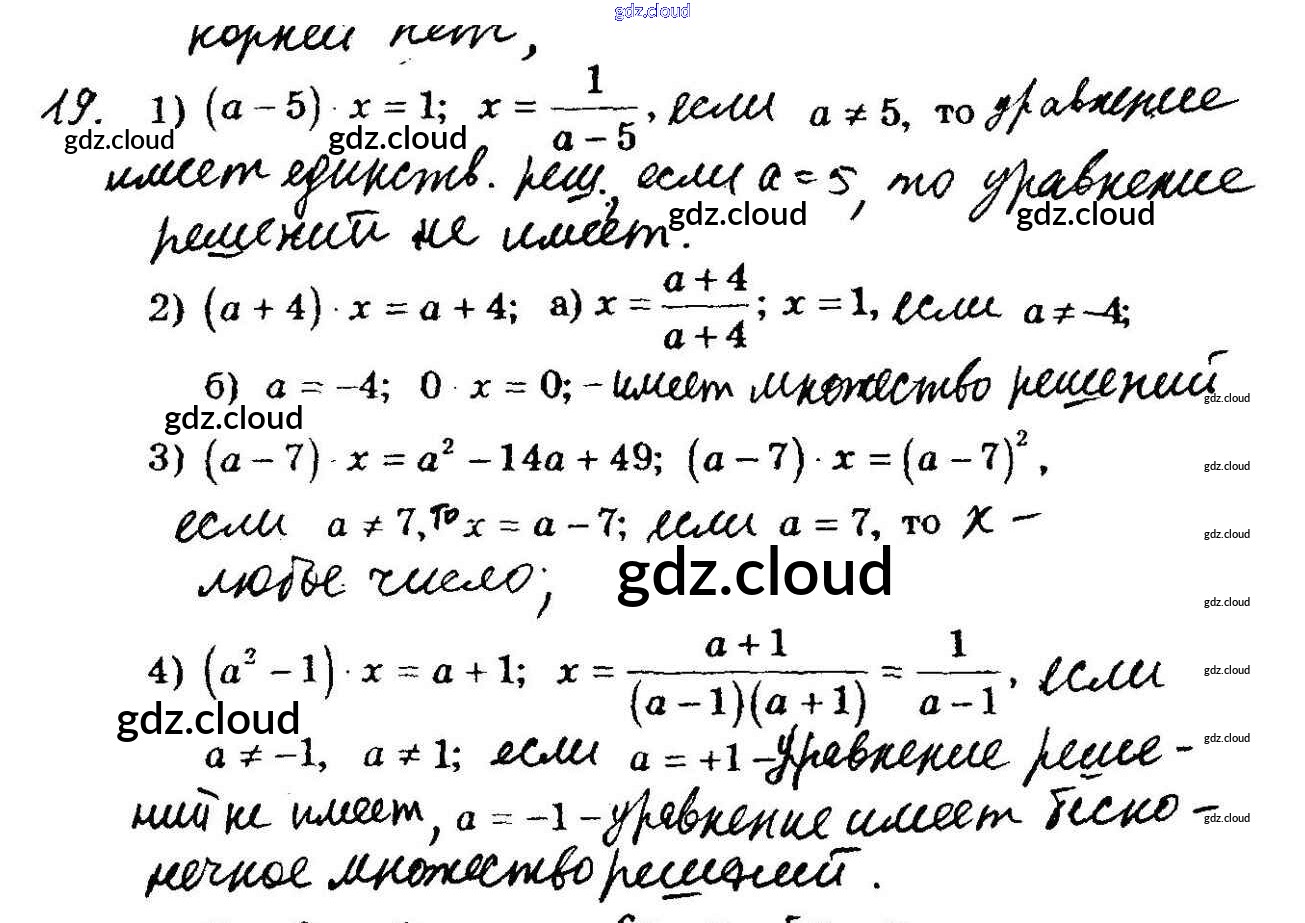 gdz.cloud
корней нет,
19. 1) (a − 5) · x = 1; x = 1/(a − 5), если a ≠ 5, то уравнение
gdz.cloud gdz.cloud
имеет единств. реш., если a = 5, то уравнение
gdz.cloud gdz.cloud
решений не имеет.
2) (a + 4) · x = a + 4; а) x = (a + 4)/(a + 4); x = 1, если a ≠ −4;
б) a = −4; 0 · x = 0; − имеет множество решений
gdz.cloud gdz.cloud
3) (a − 7) · x = a² − 14a + 49; (a − 7) · x = (a − 7)²,
gdz.cloud
если a ≠ 7, то x = a − 7; если a = 7, то x −
gdz.cloud
любое число;
gdz.cloud gdz.cloud
4) (a² − 1) · x = a + 1; x = (a + 1)/((a − 1)(a + 1)) = 1/(a − 1), если
gdz.cloud
gdz.cloud
a ≠ −1, a ≠ 1; если a = +1 − Уравнение реше-
gdz.cloud
ний не имеет, a = −1 − уравнение имеет беско-
gdz.cloud
нечное множество решений.